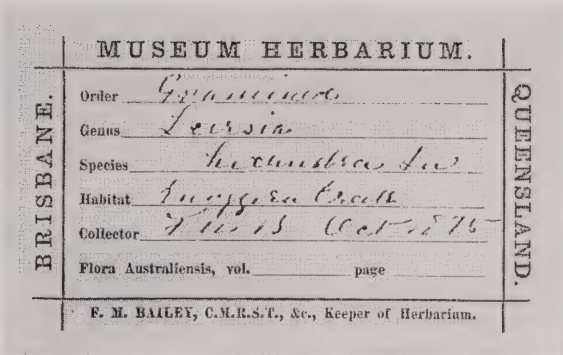 MUSEUM HERBARIUM.
BRISBANE.
QUEENSLAND.
Order Gramineæ
Genus Leersia
Species hexandra Sw
Habitat Enoggera Creek
Collector F M B Oct 1875
Flora Australiensis, vol. page
F. M. BAILEY, C.M.R.S.T., &c., Keeper of Herbarium.